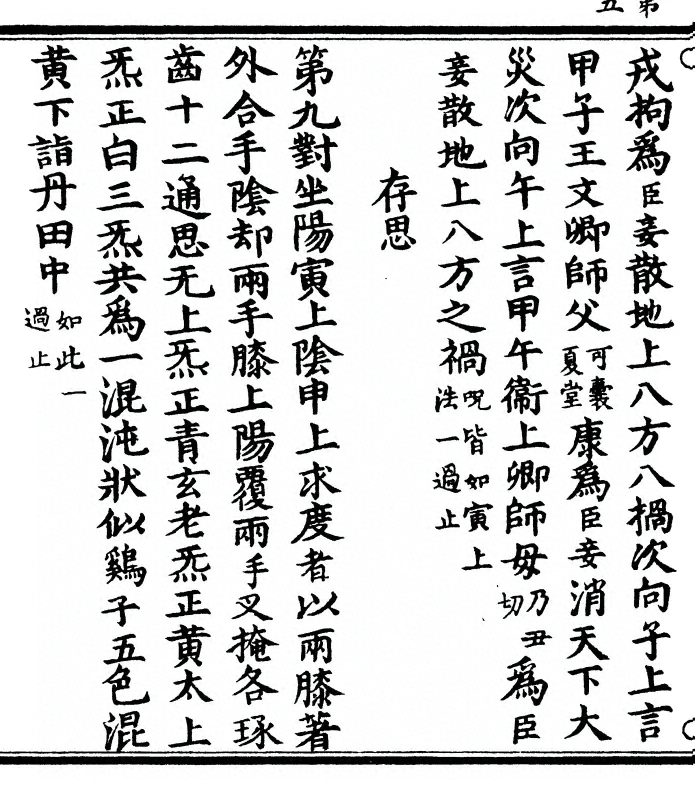 第五
戎拘爲臣妾散地上八方八禍次向子上言
甲子王文卿師父可囊夏堂康爲臣妾消天下大
災次向午上言甲午衞上卿師母乃丑切爲臣
妾散地上八方之禍呪皆如寅上法一過止
存思
第九對坐陽寅上陰申上求度者以兩膝著
外合手陰却兩手膝上陽覆兩手叉掩各琢
齒十二通思无上炁正青玄老炁正黃太上
炁正白三炁共爲一混沌狀似鷄子五色混
黃下詣丹田中如此一過止